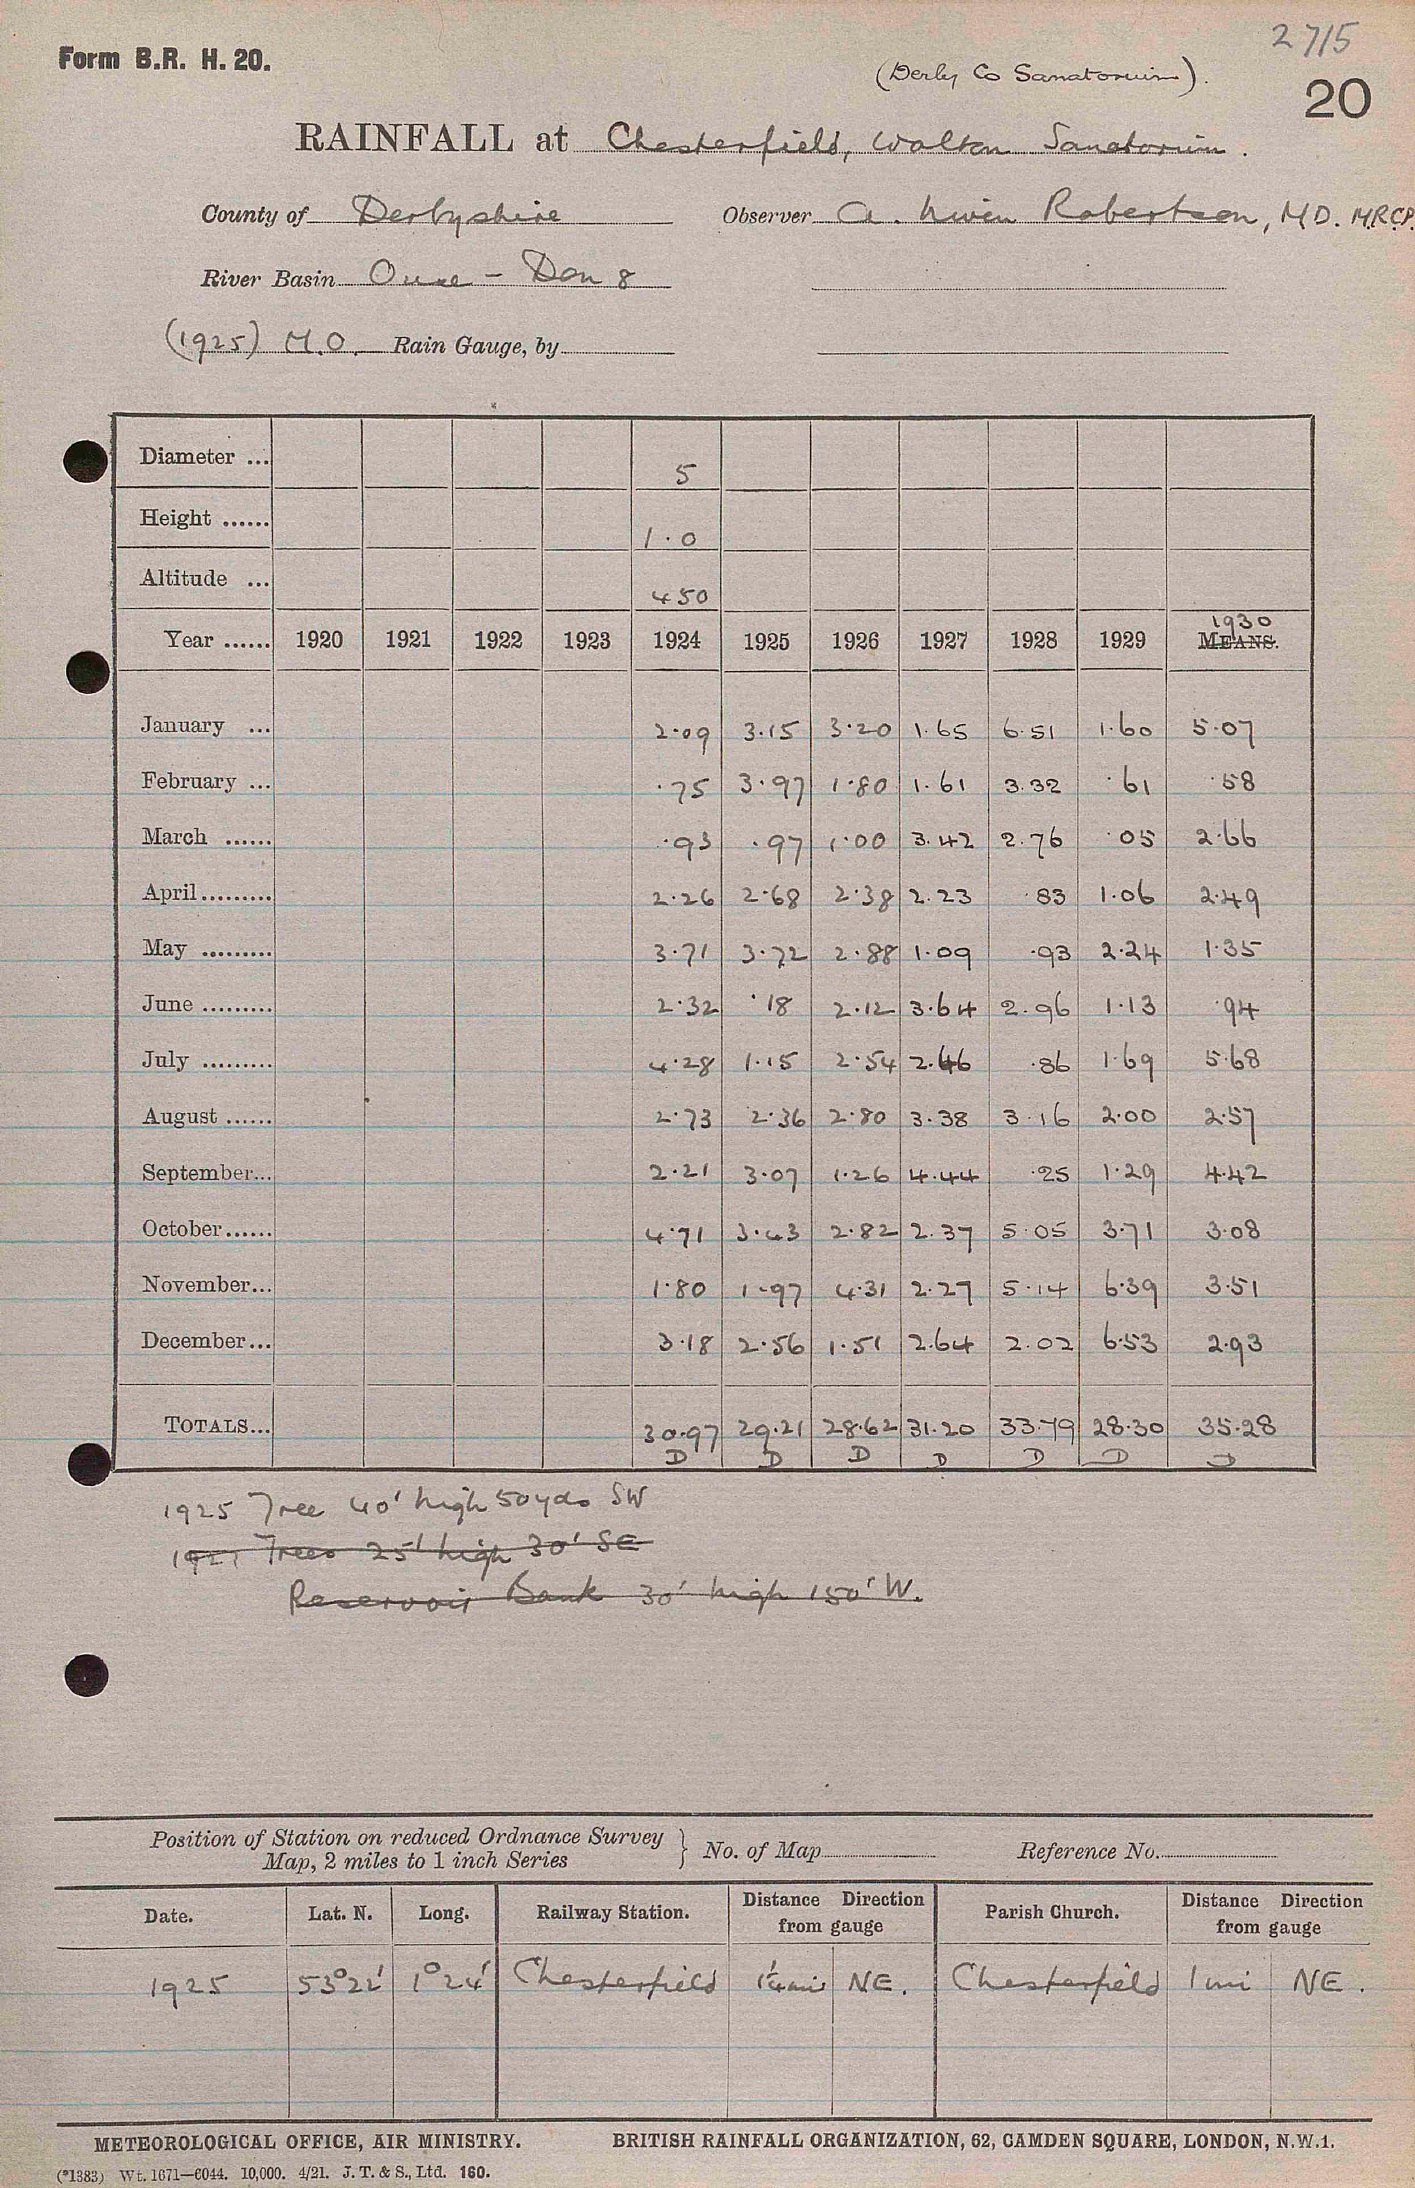 2715
Form B.R. H. 20.
(Derby Co Sanatorium).
20
RAINFALL at Chesterfield, Walton Sanatorium.
County of Derbyshire Observer A. Niven Robertson, M.D. M.R.C.P.
River Basin Ouse - Don 8
(1925) M.O. Rain Gauge, by
Diameter ... 5
Height ...... 1.0
Altitude ... 450
1930
Year ...... 1920 1921 1922 1923 1924 1925 1926 1927 1928 1929 MEANS.
January ... 2.09 3.15 3.20 1.65 6.51 1.60 5.07
February ... .75 3.97 1.80 1.61 3.32 .61 .58
March ...... .93 .97 1.00 3.42 2.76 .05 2.66
April......... 2.26 2.68 2.38 2.23 .83 1.06 2.49
May ......... 3.71 3.72 2.88 1.09 .93 2.24 1.35
June ......... 2.32 .18 2.12 3.64 2.96 1.13 .94
July ......... 4.28 1.15 2.54 2.46 .86 1.69 5.68
August ...... 2.73 2.36 2.80 3.38 3.16 2.00 2.57
September... 2.21 3.07 1.26 4.44 .25 1.29 4.42
October...... 4.71 3.43 2.82 2.37 5.05 3.71 3.08
November... 1.80 1.97 4.31 2.27 5.14 6.39 3.51
December... 3.18 2.56 1.51 2.64 2.02 6.53 2.93
TOTALS... 30.97 29.21 28.62 31.20 33.79 28.30 35.28
D D D D D D D
1925 Tree 40' high 50 yds SW
Trees 25' high 30' SE
Reservoir Bank 30' high 150' W.
Position of Station on reduced Ordnance Survey
Map, 2 miles to 1 inch Series } No. of Map Reference No.
Date. Lat. N. Long. Railway Station. Distance Direction from gauge Parish Church. Distance Direction from gauge
1925 53°22' 1°24' Chesterfield 1¼mi NE. Chesterfield 1 mi NE.
METEOROLOGICAL OFFICE, AIR MINISTRY. BRITISH RAINFALL ORGANIZATION, 62, CAMDEN SQUARE, LONDON, N.W.1.
(*1383) Wt. 1671—6044. 10,000. 4/21. J. T. & S., Ltd. 160.